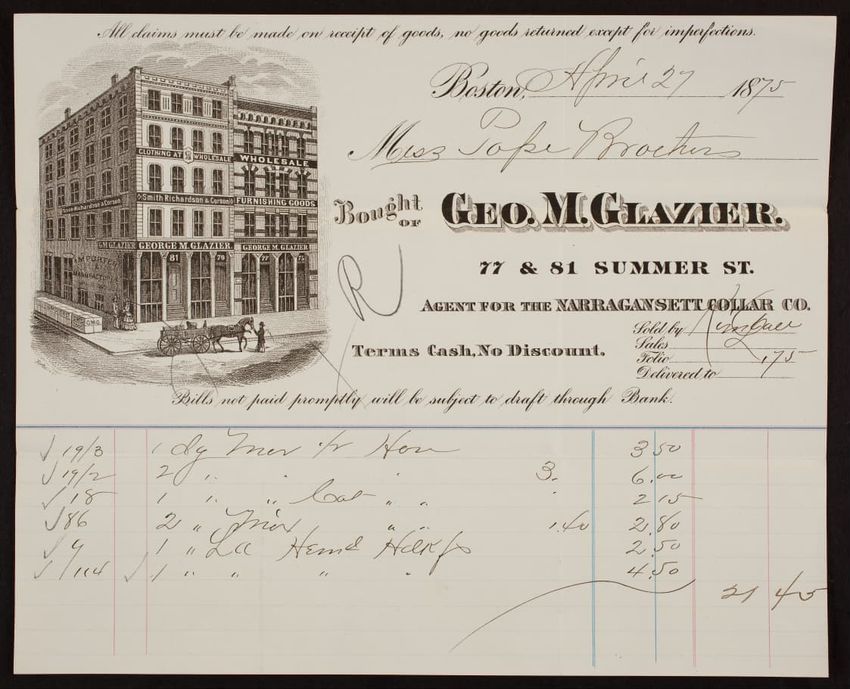 All claims must be made on receipt of goods, no goods returned except for imperfections.
Boston, April 27 1875
Mess Pope Brothers
Bought of GEO. M. GLAZIER.
77 & 81 SUMMER ST.
AGENT FOR THE NARRAGANSETT COLLAR CO.
Sold by
Sales
Folio 175
Delivered to
Terms Cash, No Discount.
R
Bills not paid promptly will be subject to draft through Bank.
CLOTHING AT WHOLESALE
WHOLESALE
Smith Richardson & Corson
Smith Richardson & Corson
FURNISHING GOODS
G.M. GLAZIER
GEORGE M. GLAZIER
GEORGE M. GLAZIER
IMPORTER
81 79 77 75
19/3 1 dy Mer Hose 3.50
19/2 2 " 3. 6.00
18 1 " " Cot " " 2 15
86 2 " " " 1.40 2.80
9 1 " La Hemd Hdkfs 2.50
1/104 1 " " " " 4.50
21 45